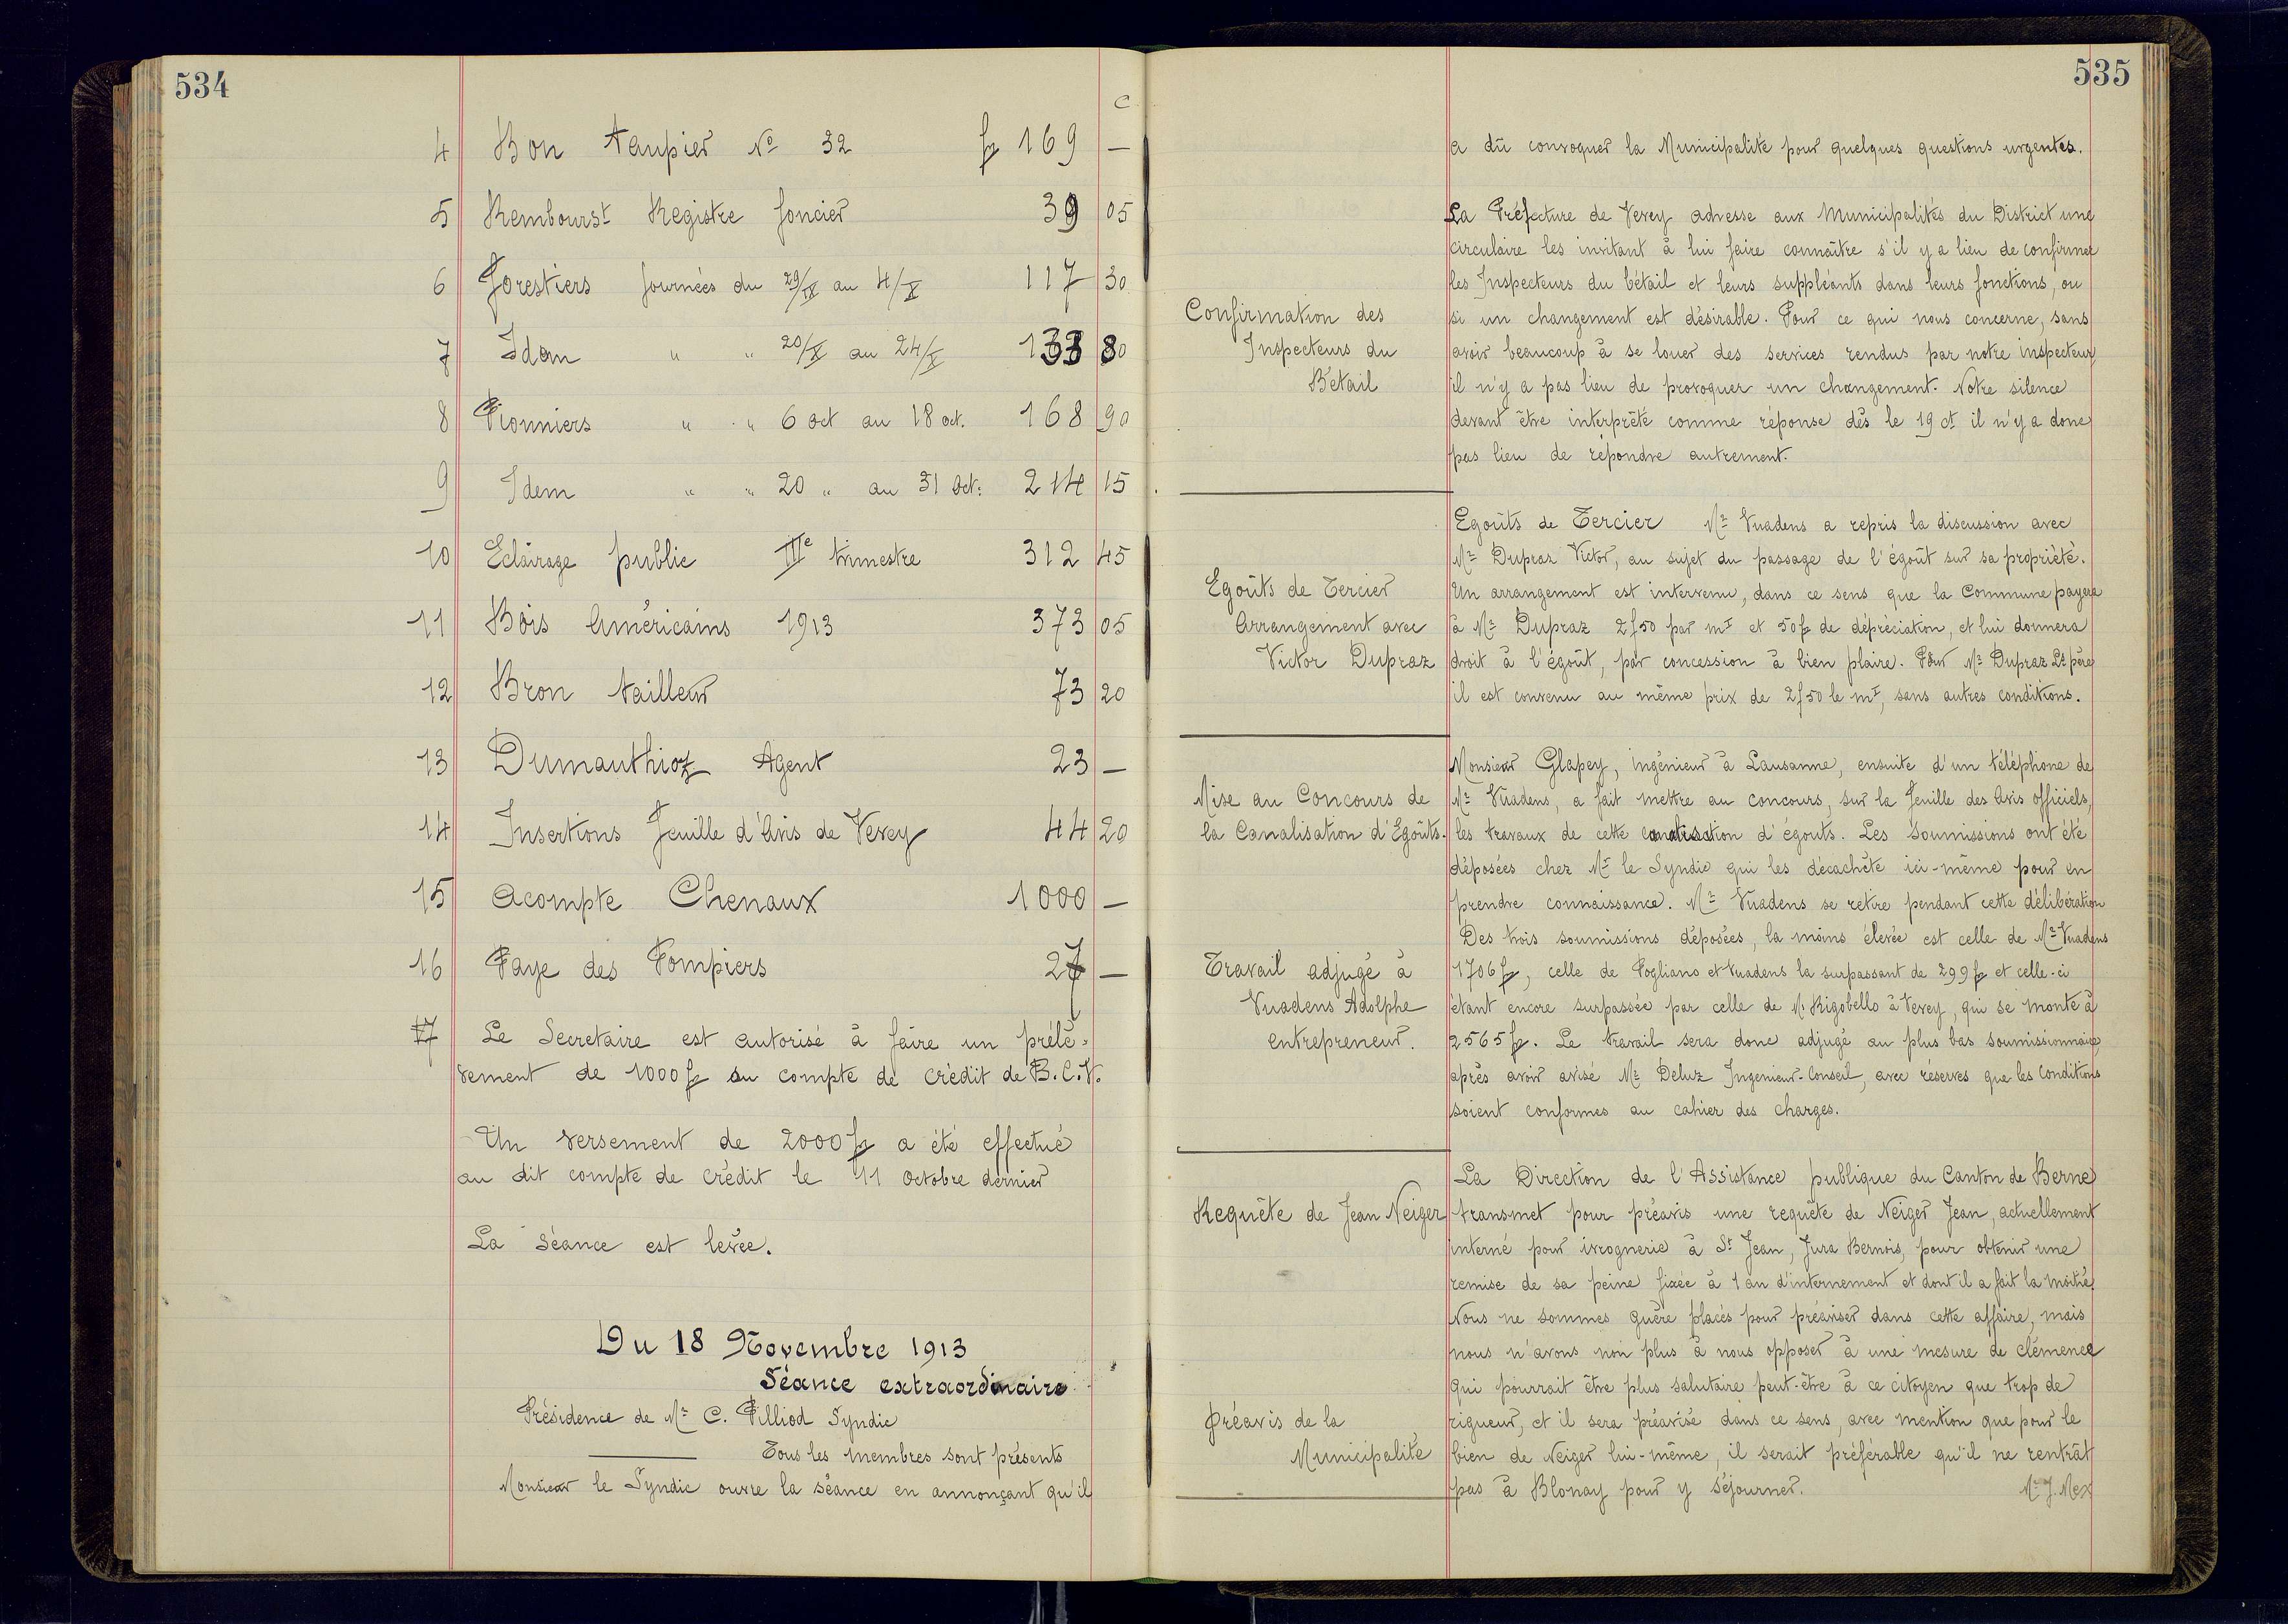 534
c
4 Bon taupier No 32 fr 169 —
5 Rembourst Registre foncier 39 05
6 Forestiers Journées du 29/IX au 4/X 117 30
7 Idem " " 20/X au 24/X 133 80
8 Pionniers " " 6 oct au 18 oct. 168 90
9 Idem " " 20 " au 31 Oct: 214 15
10 Eclairage public IIIe trimestre 312 45
11 Bois Américains 1913 373 05
12 Bron tailleur 73 20
13 Dumauthioz Agent 23 —
14 Insertions Feuille d'Avis de Vevey 44 20
15 Acompte Chenaux 1000 —
16 Paye des Pompiers 27 —
17 Le Secretaire est autorisé à faire un prélè-
vement de 1000 fr su compte de crédit de B.C.V.
Un versement de 2000 fr a été effectué
au dit compte de crédit le 11 octobre dernier
La séance est levée.
Du 18 Novembre 1913
Séance extraordinaire
Présidence de Mr C. Pilliod Syndic
Tous les membres sont présents
Monsieur le Syndic ouvre la séance en annonçant qu'il
535
a dû convoquer la Municipalité pour quelques questions urgentes.
La Préfecture de Vevey adresse aux Municipalités du District une
circulaire les invitant à lui faire connaître s'il y a lieu de confirmer
les Inspecteurs du bétail et leurs suppléants dans leurs fonctions, ou
Confirmation des
Inspecteurs du
Bétail
si un changement est désirable. Pour ce qui nous concerne, sans
avoir beaucoup à se louer des services rendus par notre inspecteur
il n'y a pas lieu de provoquer un changement. Notre silence
devant être interprété comme réponse dès le 19 ct il n'y a donc
pas lieu de répondre autrement.
Egoûts de Tercier
Arrangement avec
Victor Dupraz
Egoûts de Tercier Mr Vuadens a repris la discussion avec
Mr Dupraz Victor, au sujet du passage de l'égoût sur sa propriété.
Un arrangement est intervenu, dans ce sens que la Commune payera
à Mr Dupraz 2f50 par ml et 50 fr de dépréciation, et lui donnera
droit à l'égoût, par concession à bien plaire. Pour Mr Dupraz Ls père
il est convenu au même prix de 2f50 le ml, sans autres conditions.
Mise au Concours de
la Canalisation d'Egoûts.
Monsieur Glapey, ingénieur à Lausanne, ensuite d'un téléphone de
Mr Vuadens, a fait mettre au concours, sur la Feuille des Avis officiels,
les travaux de cette canalisation d'égouts. Les Soumissions ont été
déposées chez Mr le Syndic qui les décachète ici-même pour en
prendre connaissance. Mr Vuadens se retire pendant cette délibération
Des trois soumissions déposées, la moins élevée est celle de Mr Vuadens
Travail adjugé à
Vuadens Adolphe
entrepreneur.
1706 fr, celle de Fogliano et Vuadens la surpassant de 299 fr et celle-ci
étant encore surpassée par celle de M. Rigobello à Vevey, qui se monte à
2565 fr. Le travail sera donc adjugé au plus bas soumissionnaire
après avoir avisé Mr Deluz Ingenieur-Conseil, avec réserves que les conditions
soient conformes au cahier des charges.
Requête de Jean Neiger
La Direction de l'Assistance publique du Canton de Berne
transmet pour préavis une requête de Neiger Jean, actuellement
interné pour ivrognerie à St Jean, Jura Bernois, pour obtenir une
remise de sa peine fixée à 1 an d'internement et dont il a fait la moitié.
Nous ne sommes guère placés pour préaviser dans cette affaire, mais
nous n'avons non plus à nous opposer à une mesure de clémence
qui pourrait être plus salutaire peut-être à ce citoyen que trop de
Préavis de la
Municipalité
rigueur, et il sera préavisé dans ce sens, avec mention que pour le
bien de Neiger lui-même, il serait préférable qu'il ne rentrât
pas à Blonay pour y séjourner. Mr J. Mex